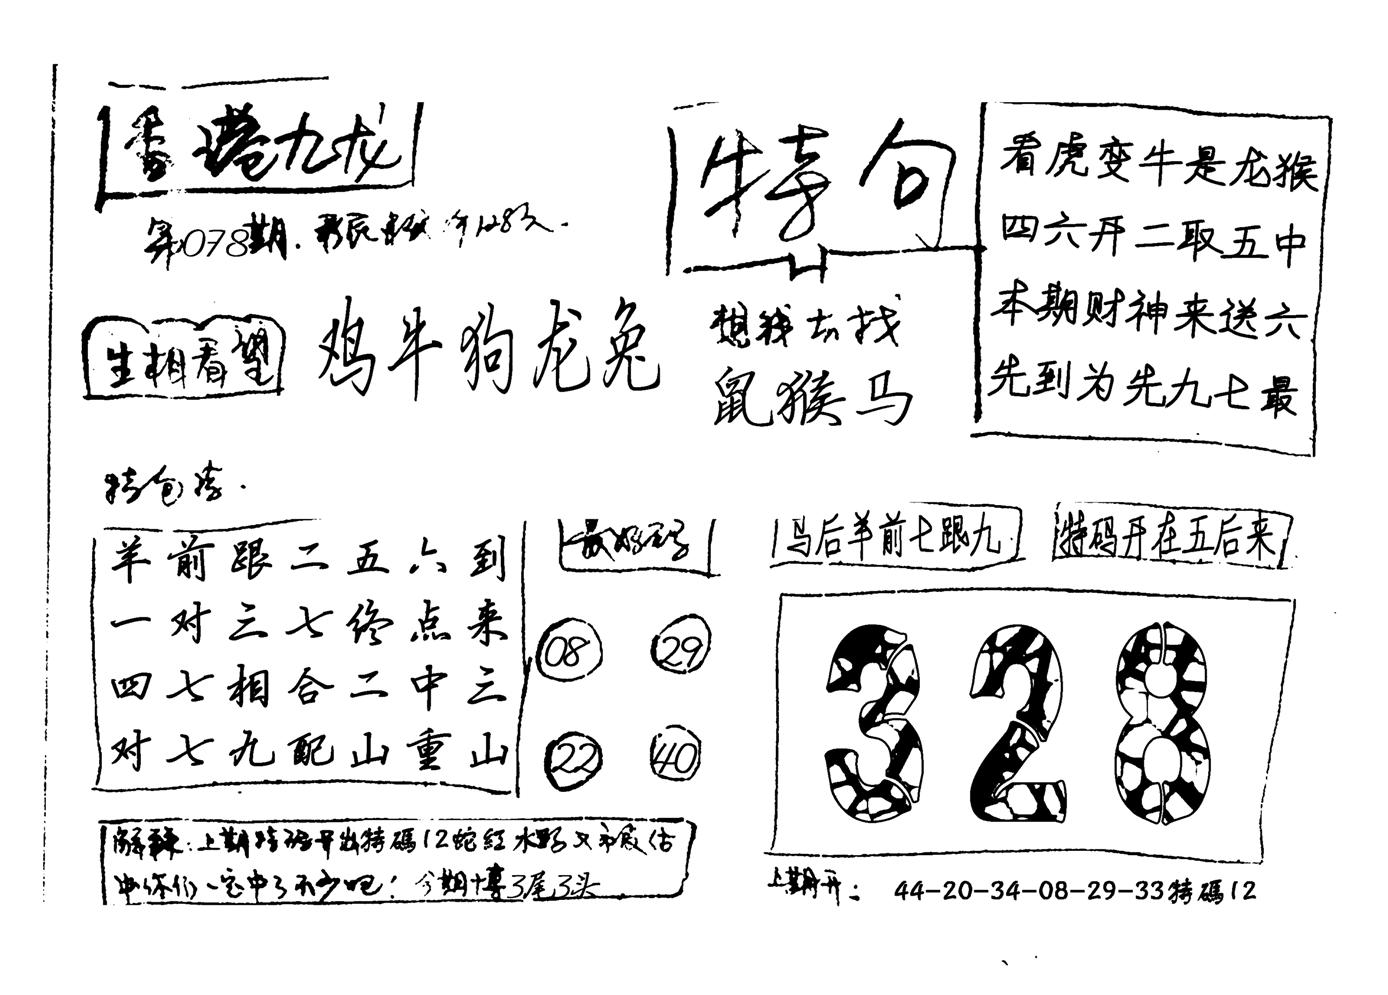 香港九龙
第078期.
特句
看虎变牛是龙猴
四六开二取五中
本期财神来送六
先到为先九七最
生相看望
鸡牛狗龙兔
想钱去找
鼠猴马
特包

羊前跟二五六到
一对三七终点来
四七相合二中三
对七九配山重山
最好玄号
08 29
22 40
马后羊前七跟九
特码开在五后来
328
解释:上期特码开出特碼12蛇红水
你们一定中了不少吧!今期博3尾3头
上期开: 44-20-34-08-29-33特碼12